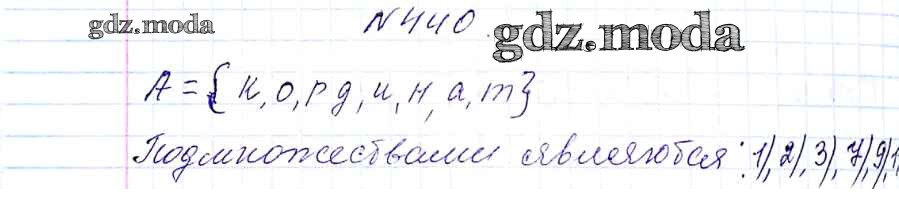 gdz.moda №440. gdz.moda
A = {к, о, р д, и, н, а, т}
Подмножествами являются: 1), 2), 3), 7), 9), 1